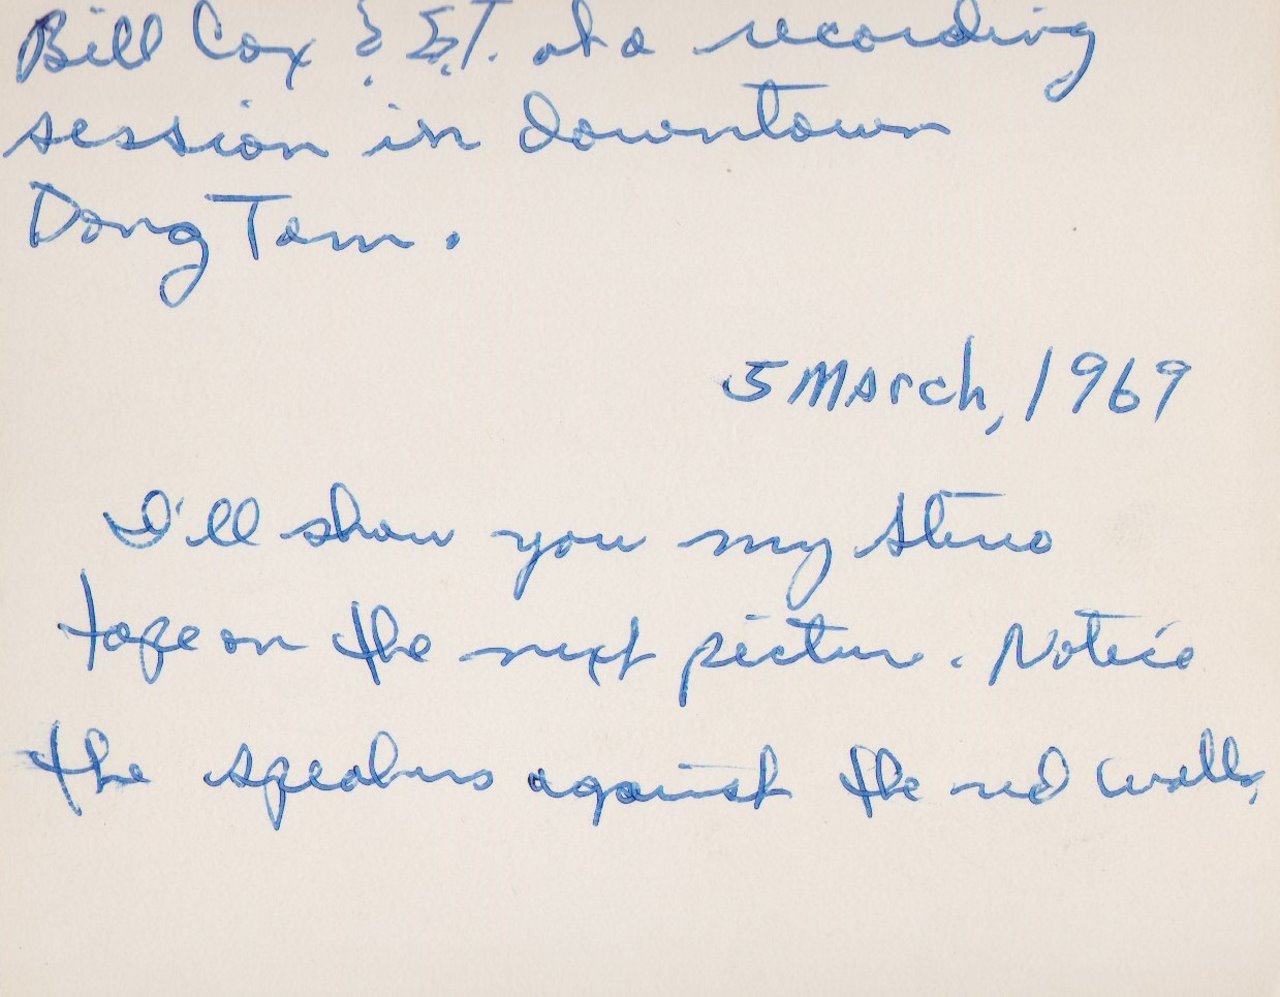 Bill Cox & E.T. at a recording
session in downtown
Dong Tam.
5 March, 1969
I'll show you my steno
tape on the next picture. Notice
the speakers against the red walls,